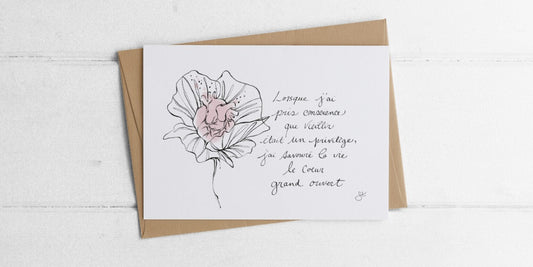 Lorsque j'ai
pris conscience
que vieillir
était un privilège,
j'ai savouré la vie
le coeur
grand ouvert